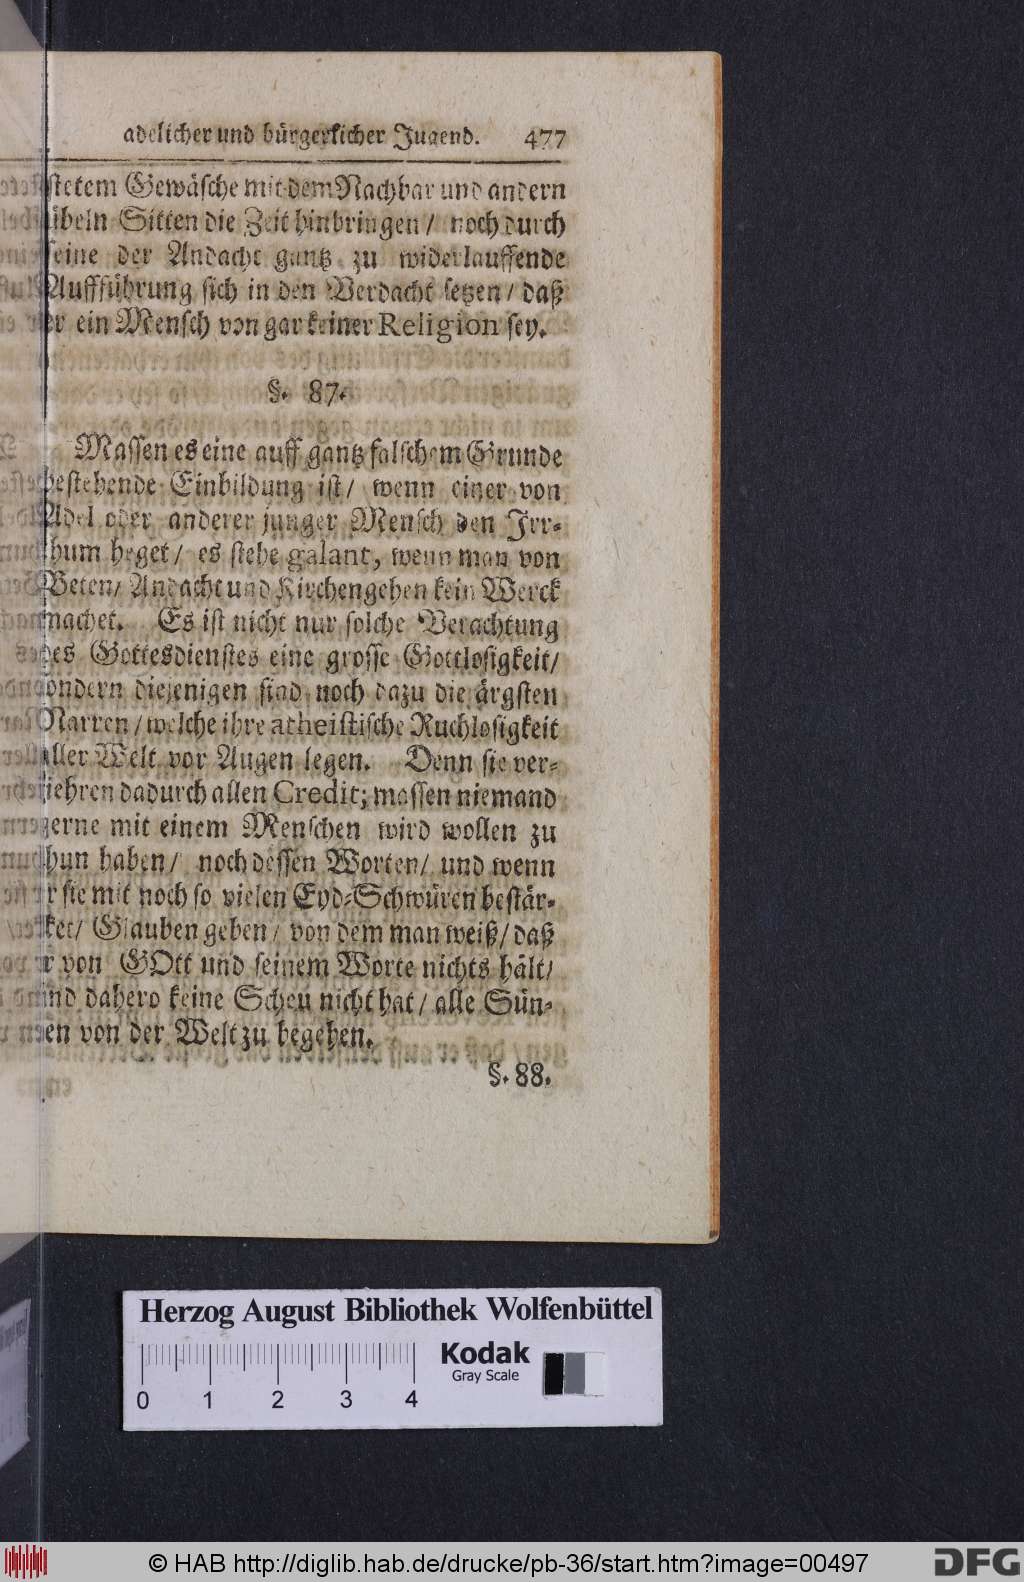 adelicher und bürgerlicher Jugend. 477
stetem Gewäsche mit dem Nachbar und andern
übeln Sitten die Zeit hinbringen / noch durch
seine der Andacht gantz zu widerlauffende
Auffführung sich in den Verdacht setzen / daß
er ein Mensch von gar keiner Religion sey.
§. 87.
Massen es eine auff gantz falschem Grunde
bestehende Einbildung ist / wenn einer von
Adel oder anderer junger Mensch den Irr-
thum heget / es stehe galant, wenn man von
Beten / Andacht und Kirchengehen kein Werck
machet. Es ist nicht nur solche Verachtung
des Gottesdienstes eine grosse Gottlosigkeit /
sondern diejenigen sind noch dazu die ärgsten
Narren / welche ihre atheistische Ruchlosigkeit
aller Welt vor Augen legen. Denn sie ver-
liehren dadurch allen Credit; massen niemand
gerne mit einem Menschen wird wollen zu
thun haben / noch dessen Worten / und wenn
er sie mit noch so vielen Eyd-Schwüren bestär-
ket / Glauben geben / von dem man weiß / daß
er von GOtt und seinem Worte nichts hält /
und dahero keine Scheu nicht hat / alle Sün-
den von der Welt zu begehen.
§. 88.
Herzog August Bibliothek Wolfenbüttel
Kodak
Gray Scale
0 1 2 3 4
© HAB http://diglib.hab.de/drucke/pb-36/start.htm?image=00497
DFG